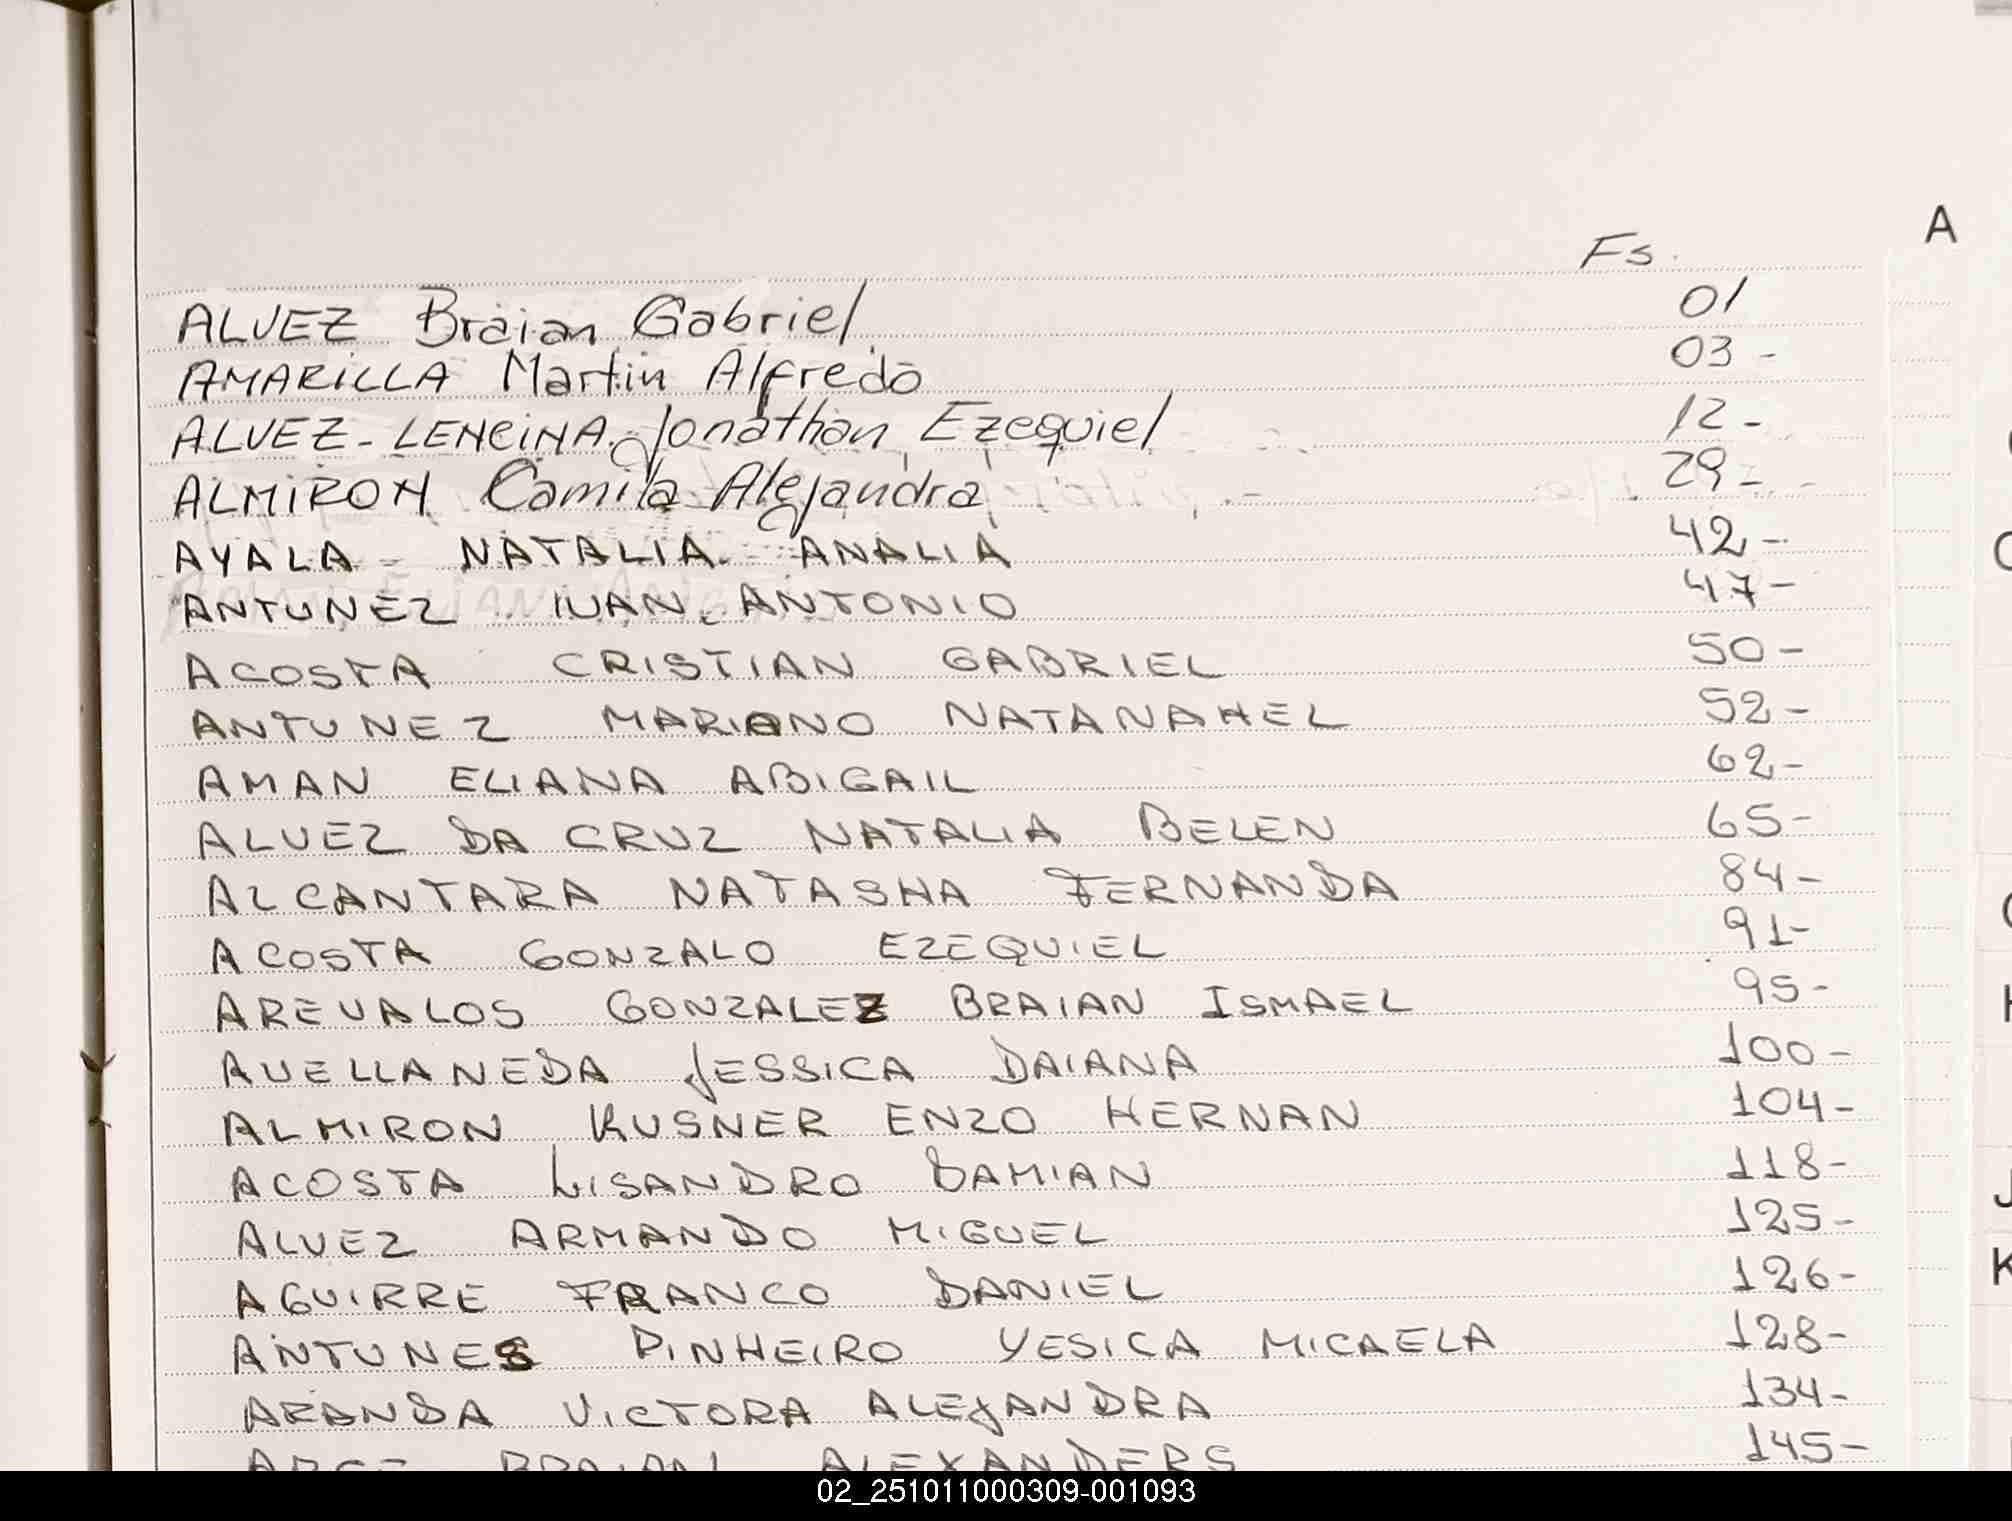 A
Fs.
ALVEZ Braian Gabriel 01
AMARILLA Martin Alfredo 03 -
ALVEZ-LENCINA Jonathan Ezequiel 12 -
ALMIRON Camila Alejandra 29 -
AYALA NATALIA ANALIA 42 -
ANTUNEZ IVAN ANTONIO 47 -
ACOSTA CRISTIAN GABRIEL 50 -
ANTUNEZ MARIANO NATANAHEL 52 -
AMAN ELIANA ABIGAIL 62 -
ALVEZ DA CRUZ NATALIA BELEN 65 -
ALCANTARA NATASHA FERNANDA 84 -
ACOSTA GONZALO EZEQUIEL 91 -
AREVALOS GONZALEZ BRAIAN ISMAEL 95 -
AVELLANEDA JESSICA DAIANA 100 -
ALMIRON KUSNER ENZO HERNAN 104 -
ACOSTA LISANDRO DAMIAN 118 -
ALVEZ ARMANDO MIGUEL 125 -
AGUIRRE FRANCO DANIEL 126 -
ANTUNES PINHEIRO YESICA MICAELA 128 -
ARANDA VICTORA ALEJANDRA 134 -
BRAIAN ALEXANDERS 145 -
J
K
02_251011000309-001093